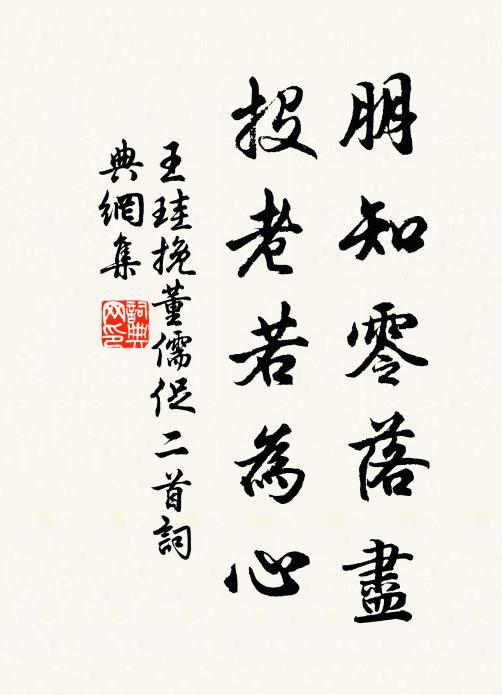 朋知零落盡
投老若為心
王珪挽董儒促二首詞
典網集
詞典网印